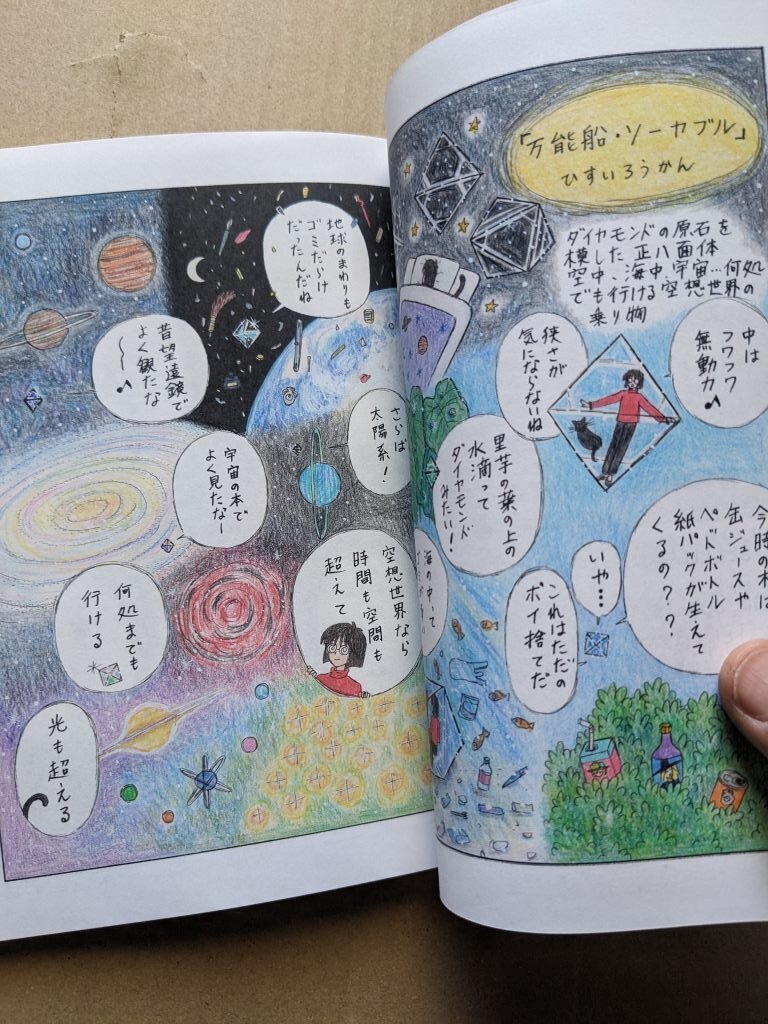 「万能船・ソーカブル」
ひすいろうかん
ダイヤモンドの原石を
模した正八面体
空中、海中、宇宙…何処
でも行ける空想世界の
乗り物
中は
フワフワ
無動力♪
狭さが
気にならないね
里芋の葉の上の
水滴って
ダイヤモンド
みたい!
缶ジュースや
ペットボトル
紙パックが生えて
くるの??
いや…
これはただの
ポイ捨てだ
海の中って
地球のまわりも
ゴミだらけ
だったんだね
昔望遠鏡で
よく観たな
〜♪
さらば
太陽系!
宇宙の本で
よく見たなー
空想世界なら
時間も空間も
超えて
何処までも
行ける
光も超える